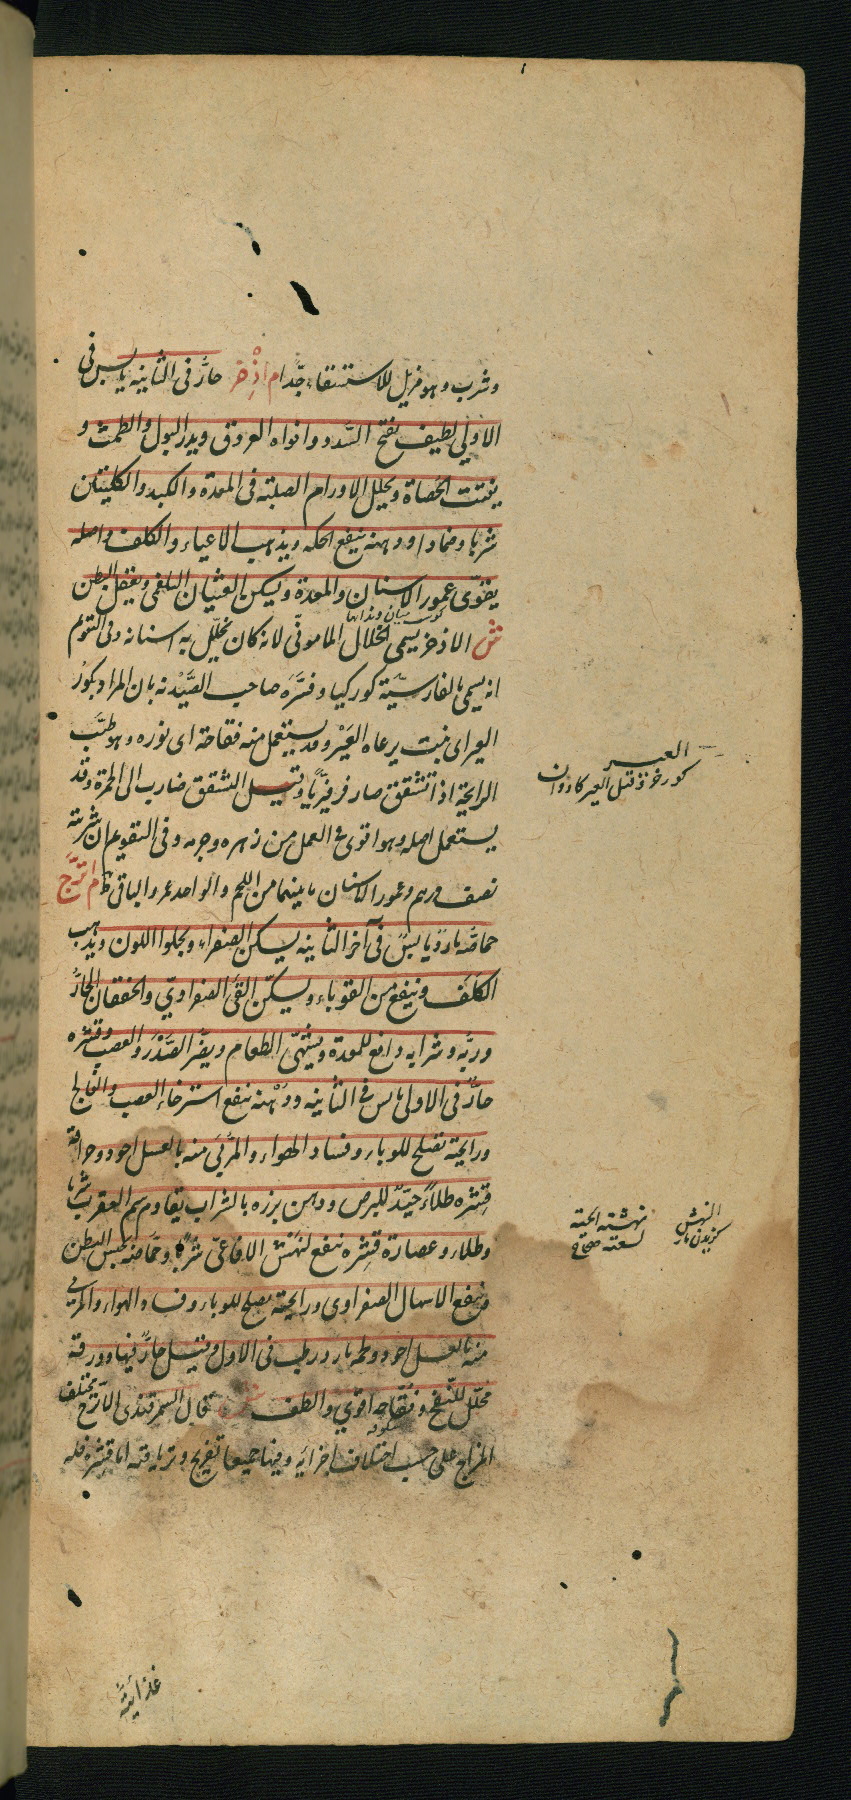 وشرب وهو مزيل للاستسقاء جدا م اذخر حار فى الثانية يابس فى
الاولى لطيف يفتح السدد وافواه العروق ويدر البول والطمث و
يفتت الحصاة ويحلل الاورام الصلبة فى المعدة والكبد والكليتين
شربا وضمادا ودهنه ينفع الحكة ويذهب الاعياء والكلف واصله
يقوى عمور الاسنان والمعدة ويسكن الغثيان البلغمى ويعقل البطن
ش الاذخر يسمى الخلال المامونى لانه كان يخلل به اسنانه وفى التقويم
انه يسمى بالفارسية كوركيا وفسره صاحب الصيدنة بان المراد بكور
العير اى نبت يرعاه العير وقد يستعمل منه فقاحه اى نوره وهو طيب
الرايحة اذا تشقق صار فرفيريا وقيل التشقق ضارب الى الحمرة وقد
يستعمل اصله وهو اقوى فى العمل من زهره وجرمه وفى التقويم ان شربته
نصف درهم وعمور الاسنان ما بينها من اللحم والواحد عمر والباقى ظ م اترج
حماضه بارد يابس فى آخر الثانية يسكن الصفراء ويجلوا اللون ويذهب
الكلف وينفع من القوباء ويسكن القى الصفراوى والخفقان الحار
وربه وشرابه دابغ للمعدة ويشهى الطعام ويضر الصدر والعصب وقشره
حار فى الاولى يابس فى الثانية ودهنه ينفع استرخاء العصب والفالج
ورايحته تصلح للوباء وفساد الهواء والمربى منه بالعسل اجود وحراقة
قشره طلاء جيد للبرص ودهن بزره بالشراب يقاوم سم العقرب شربا
وطلاء وعصارة قشره ينفع لنهش الافاعى شربا وحماضه يحبس البطن
وينفع الاسهال الصفراوى ورايحته يصلح للوباء وفساد الهواء والمربى
منه بالعسل اجود ولحمه بارد رطب فى الاول وقيل حار فيها وورقه
محلل للنفخ وفقاحه اقوى والطف قال السمرقندى الاترج مختلف
المزاج على حسب اختلاف اجزايه وفيها جميعا تفريح وترياقية اما قشره فله
العير
كورخر
النهش
كزيدن مار
نهشته الحية
لسعته صحاح
غذائية